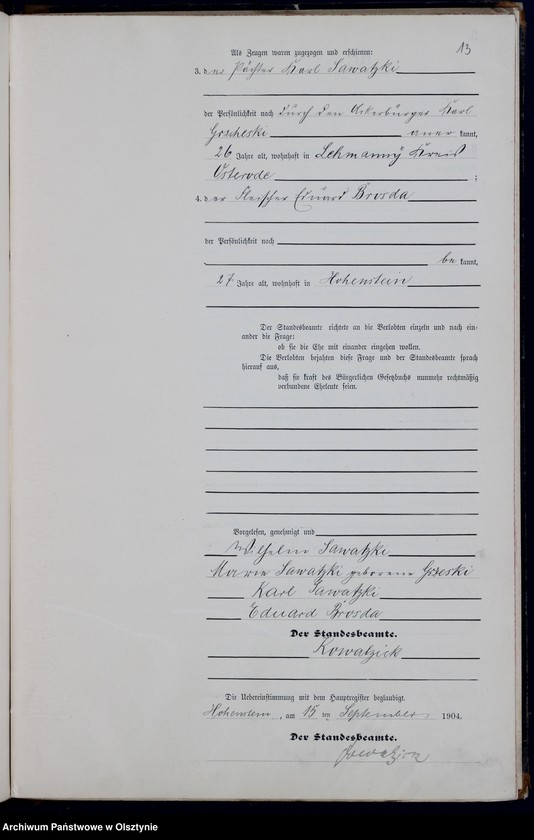 13
Als Zeugen waren zugezogen und erschienen:
3. der Pächter Karl Sawatzki
der Persönlichkeit nach durch den Ackerbürger Karl
Grzheski anerkannt,
26 Jahre alt, wohnhaft in Lehmanny Kreis
Osterode ;
4. der Fleischer Eduard Brosda
der Persönlichkeit nach
bekannt,
27 Jahre alt, wohnhaft in Hohenstein
Der Standesbeamte richtete an die Verlobten einzeln und nach ein-
ander die Frage:
ob sie die Ehe mit einander eingehen wollen.
Die Verlobten bejahten diese Frage und der Standesbeamte sprach
hierauf aus,
daß sie kraft des Bürgerlichen Gesetzbuchs nunmehr rechtmäßig
verbundene Eheleute seien.
Vorgelesen, genehmigt und
Wilhelm Sawatzki
Marie Sawatzki geborene Grzeski
Karl Sawatzki
Eduard Brosda
Der Standesbeamte.
Kowalzick
Die Uebereinstimmung mit dem Hauptregister beglaubigt.
Hohenstein, am 15 ten September 1904.
Der Standesbeamte.
Archiwum Państwowe w Olsztynie